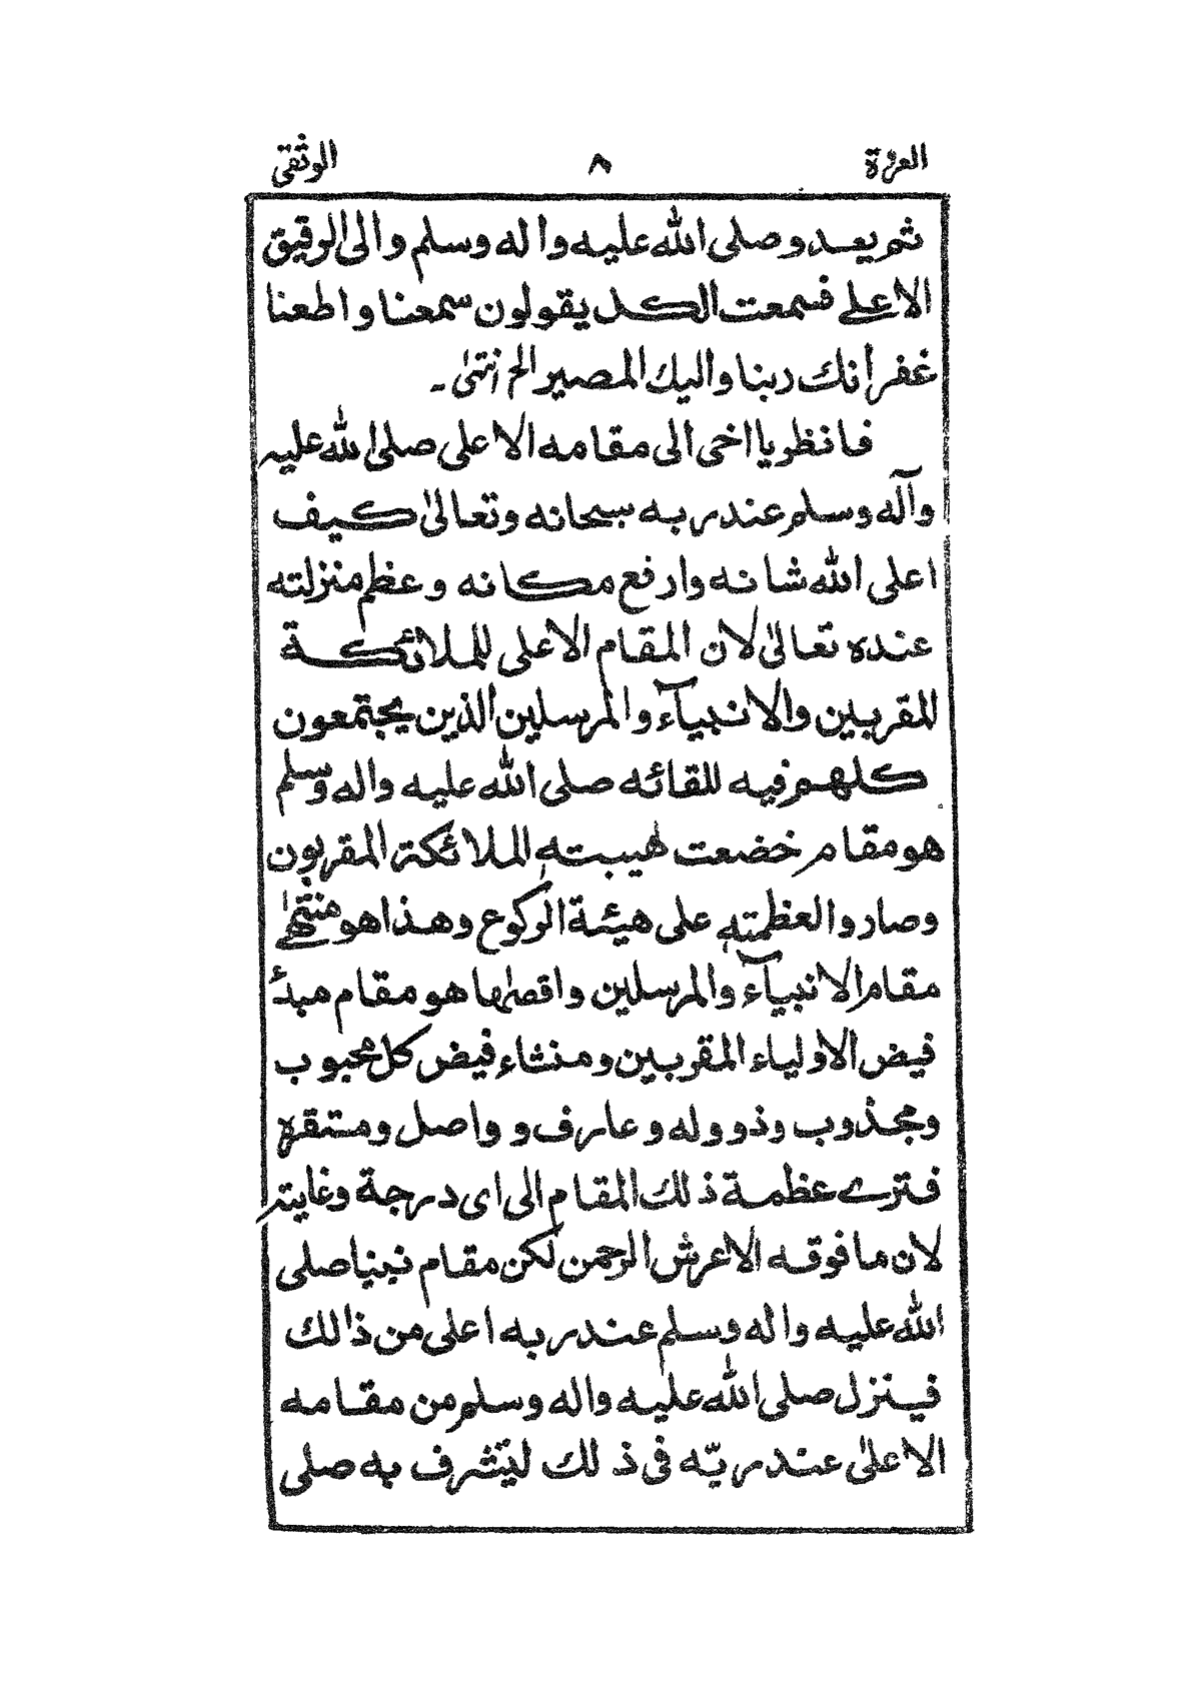 العروة ٨ الوثقى
ثم يعد وصلى الله عليه واله وسلم والى الرقيق
الاعلے فسمعت الكل يقولون سمعنا واطعنا
غفرانك ربنا واليك المصير الخ انتهٰى ۔
فانظر يا اخى الى مقامه الاعلى صلى الله عليه
وآله وسلم عند ربه سبحانه وتعالىٰ كيف
اعلى الله شانه وارفع مكانه وعظم منزلته
عنده تعالىٰ لان المقام الاعلى للملائكة
المقربين والانبيآء والمرسلين الذين يجتمعون
كلهم فيه للقائه صلى الله عليه واله وسلم
هو مقام خضعت لهيبته الملائكة المقربون
وصاروا لعظمته على هيئة الركوع وهذا هو منتهٰے
مقام الانبيآء والمرسلين واقصٰها هو مقام مبدأ
فيض الاولياء المقربين ومنشاء فيض كل محبوب
ومجذوب وذو وله وعارف و واصل ومنتقره
فترے عظمة ذلك المقام الى اى درجة وغايته
لان ما فوقه الا عرش الرحمن لكن مقام نبينا صلى
الله عليه واله وسلم عند ربه اعلى من ذالك
فينزل صلى الله عليه واله وسلم من مقامه
الاعلىٰ عند ربّه فى ذلك ليتشرف به صلى